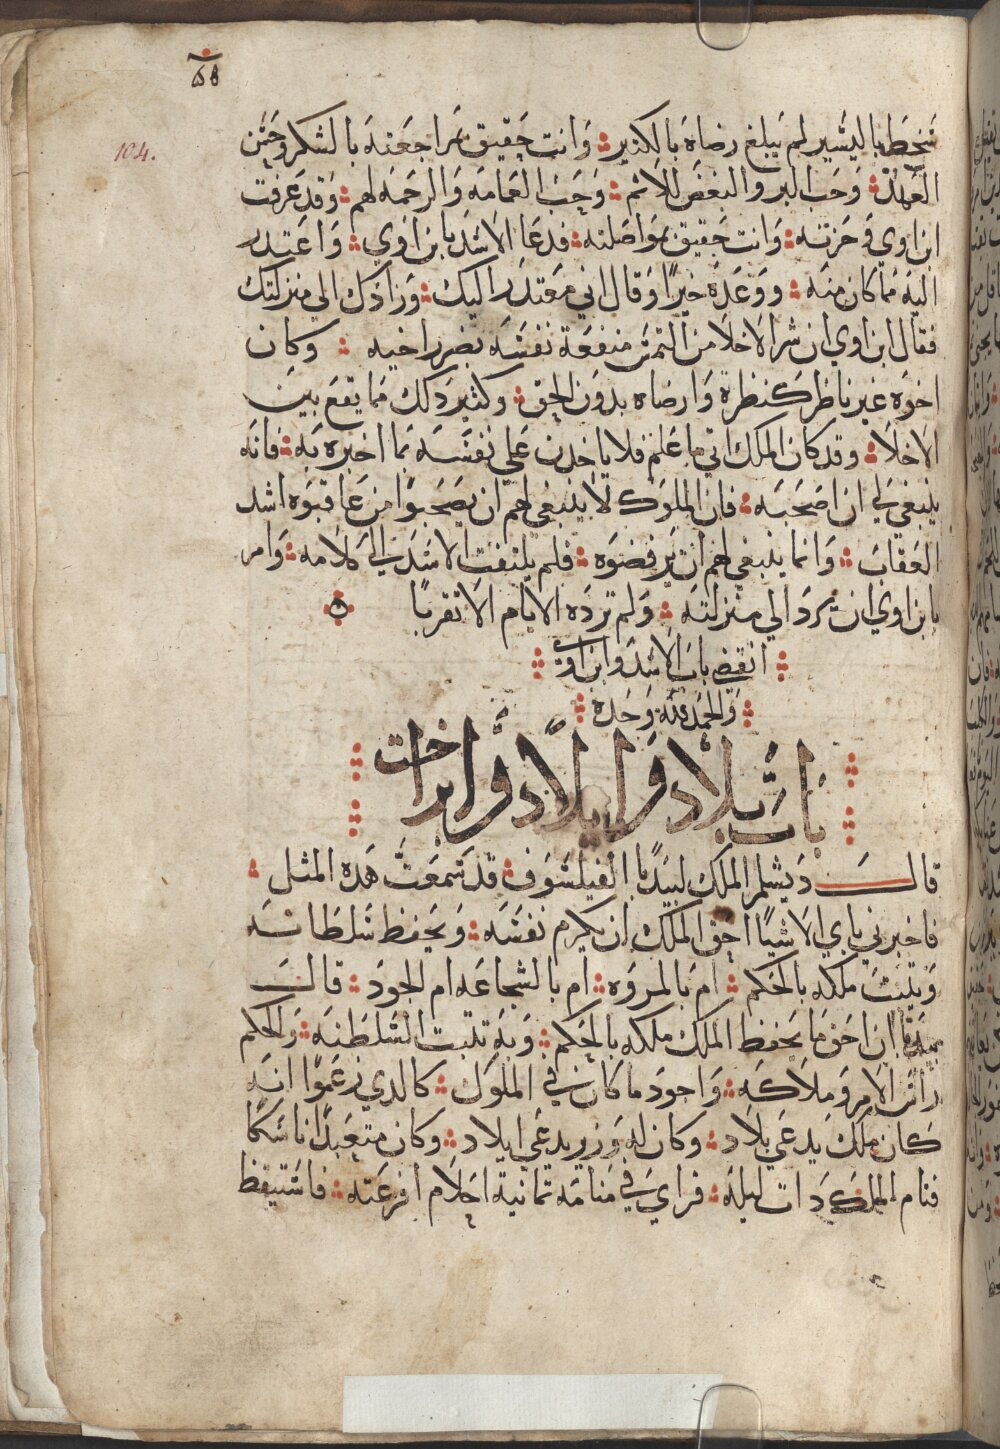 104.
سخط باليسير لم يبلغ رضاه بالكثير وانت حقيق بمراجعته بالشكر وحسن
العهد وحب البر والبغض للاثم وحب العامه والرحمه لهم وقد عرفت
ابن اوي وخزته وانت حقيق بمواصلته فدعا الاسد بابن اوي واعتدر
اليه مما كان منه ووعده خيرًا وقال اني معتدر اليك وزادك الي منزلتك
فقال ابن اوي ان شر الاخلا من التمس منفعة نفسه بضرر اخيه وكان
اخوه غير ناظر كنظرة وارضاه بدون الحق وكثير دلك مما يقع بين
الاخلا وقد كان الملك اتي ما علم فلا ياخدن علي نفسه بما اخبره به فانه
ينبغي لي ان اصحبه فان الملوك لا ينبغي لهم ان يصحبوا من عاقبوه اشد
العقاب وانما ينبغي لهم ان يرفضوه فلم يلتفت الاسد الي كلامه وامر
بابن اوي ان يرد الي منزلته ولم ترده الايام الا تقربًا
انقضي باب الاسد وابن اوي
والحمد لله وحده
باب بيلاد وايلاد وابراخت
قال دبشلم الملك لبيدبا الفيلسوف قد سمعت هده المثل
فاخبرني باي الاشيا احق الملك ان يكرم نفسه ويحفظ سلطانه
ويثبت ملكه بالحكم ام بالمروه ام بالشجاعه ام الجود قال
بيدبا ان احق ما يحفظ الملك ملكه بالحكم وبه تثبت السلطنه والحكم
راس الامر وملاكه واجود ما كان في الملوك كالدي زعموا انه
كان ملك يدعي بلاد وكان له وزير يدعي ايلاد وكان متعبدًا ناسكًا
فنام الملك دات ليله فراي في منامه تمانية احلام افزعته فاستيقظ